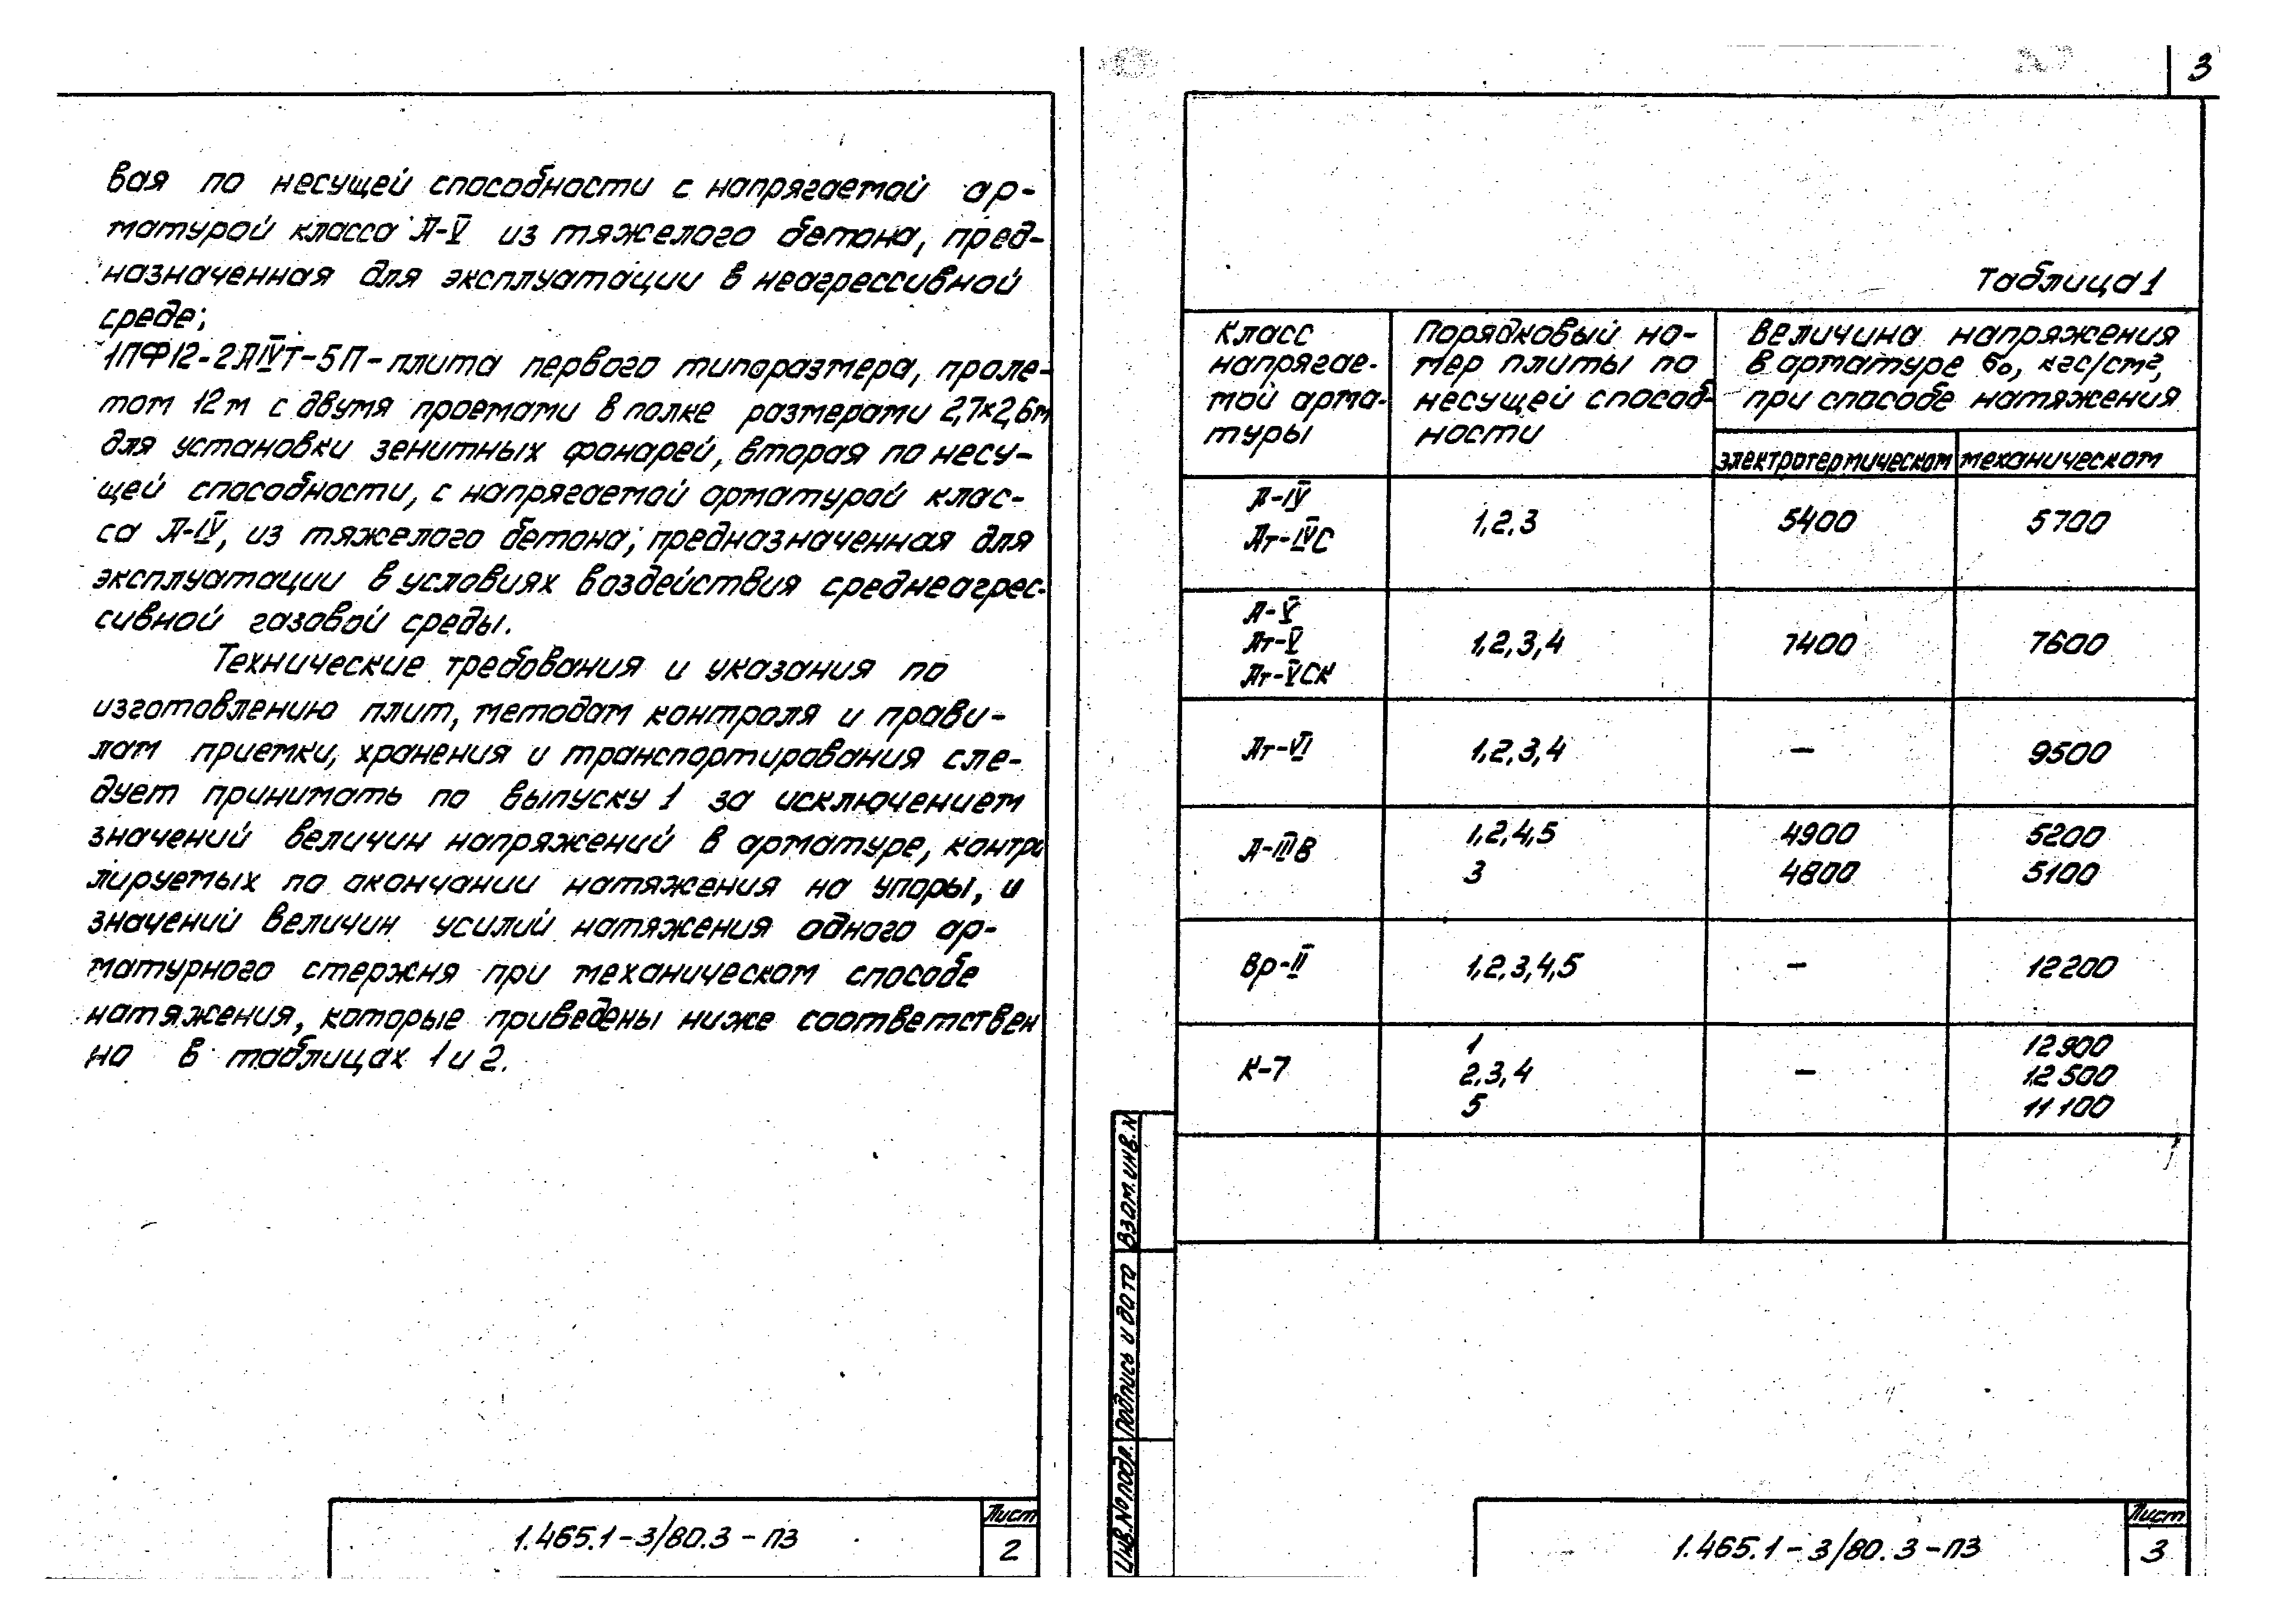 вая по несущей способности с напрягаемой ар-
матурой класса А-V из тяжелого бетона, пред-
назначенная для эксплуатации в неагрессивной
среде;
1ПФ12-2АIVТ-5П-плита первого типоразмера, проле-
том 12м с двумя проемами в полке размерами 2,7×2,6м
для установки зенитных фонарей, вторая по несу-
щей способности, с напрягаемой арматурой клас-
са А-IV, из тяжелого бетона, предназначенная для
эксплуатации в условиях воздействия среднеагрес-
сивной газовой среды.
Технические требования и указания по
изготовлению плит, методам контроля и прави-
лам приемки, хранения и транспортирования сле-
дует принимать по выпуску 1 за исключением
значений величин напряжений в арматуре, контро
лируемых по окончании натяжения на упоры, и
значений величин усилий натяжения одного ар-
матурного стержня при механическом способе
натяжения, которые приведены ниже соответствен
но в таблицах 1 и 2.
1.465.1-3/80.3-ПЗ
Лист
2
3
Таблица 1
Класс напрягае- мой арма- туры
Порядковый но- мер плиты по несущей способ- ности
Величина напряжения в арматуре σ₀, кгс/см², при способе натяжения
электротермическом механическом
А-IV
Ат-IVС 1,2,3 5400 5700
А-V
Ат-V 1,2,3,4 7400 7600
Ат-VСК
Ат-VI 1,2,3,4 — 9500
А-IIIВ 1,2,4,5 4900 5200
3 4800 5100
Вр-II 1,2,3,4,5 — 12200
К-7 1 12900
2,3,4 — 12500
5 11100
Взам. инв. N
Подпись и дата
Инв. № подл.
1.465.1-3/80.3-ПЗ
Лист
3